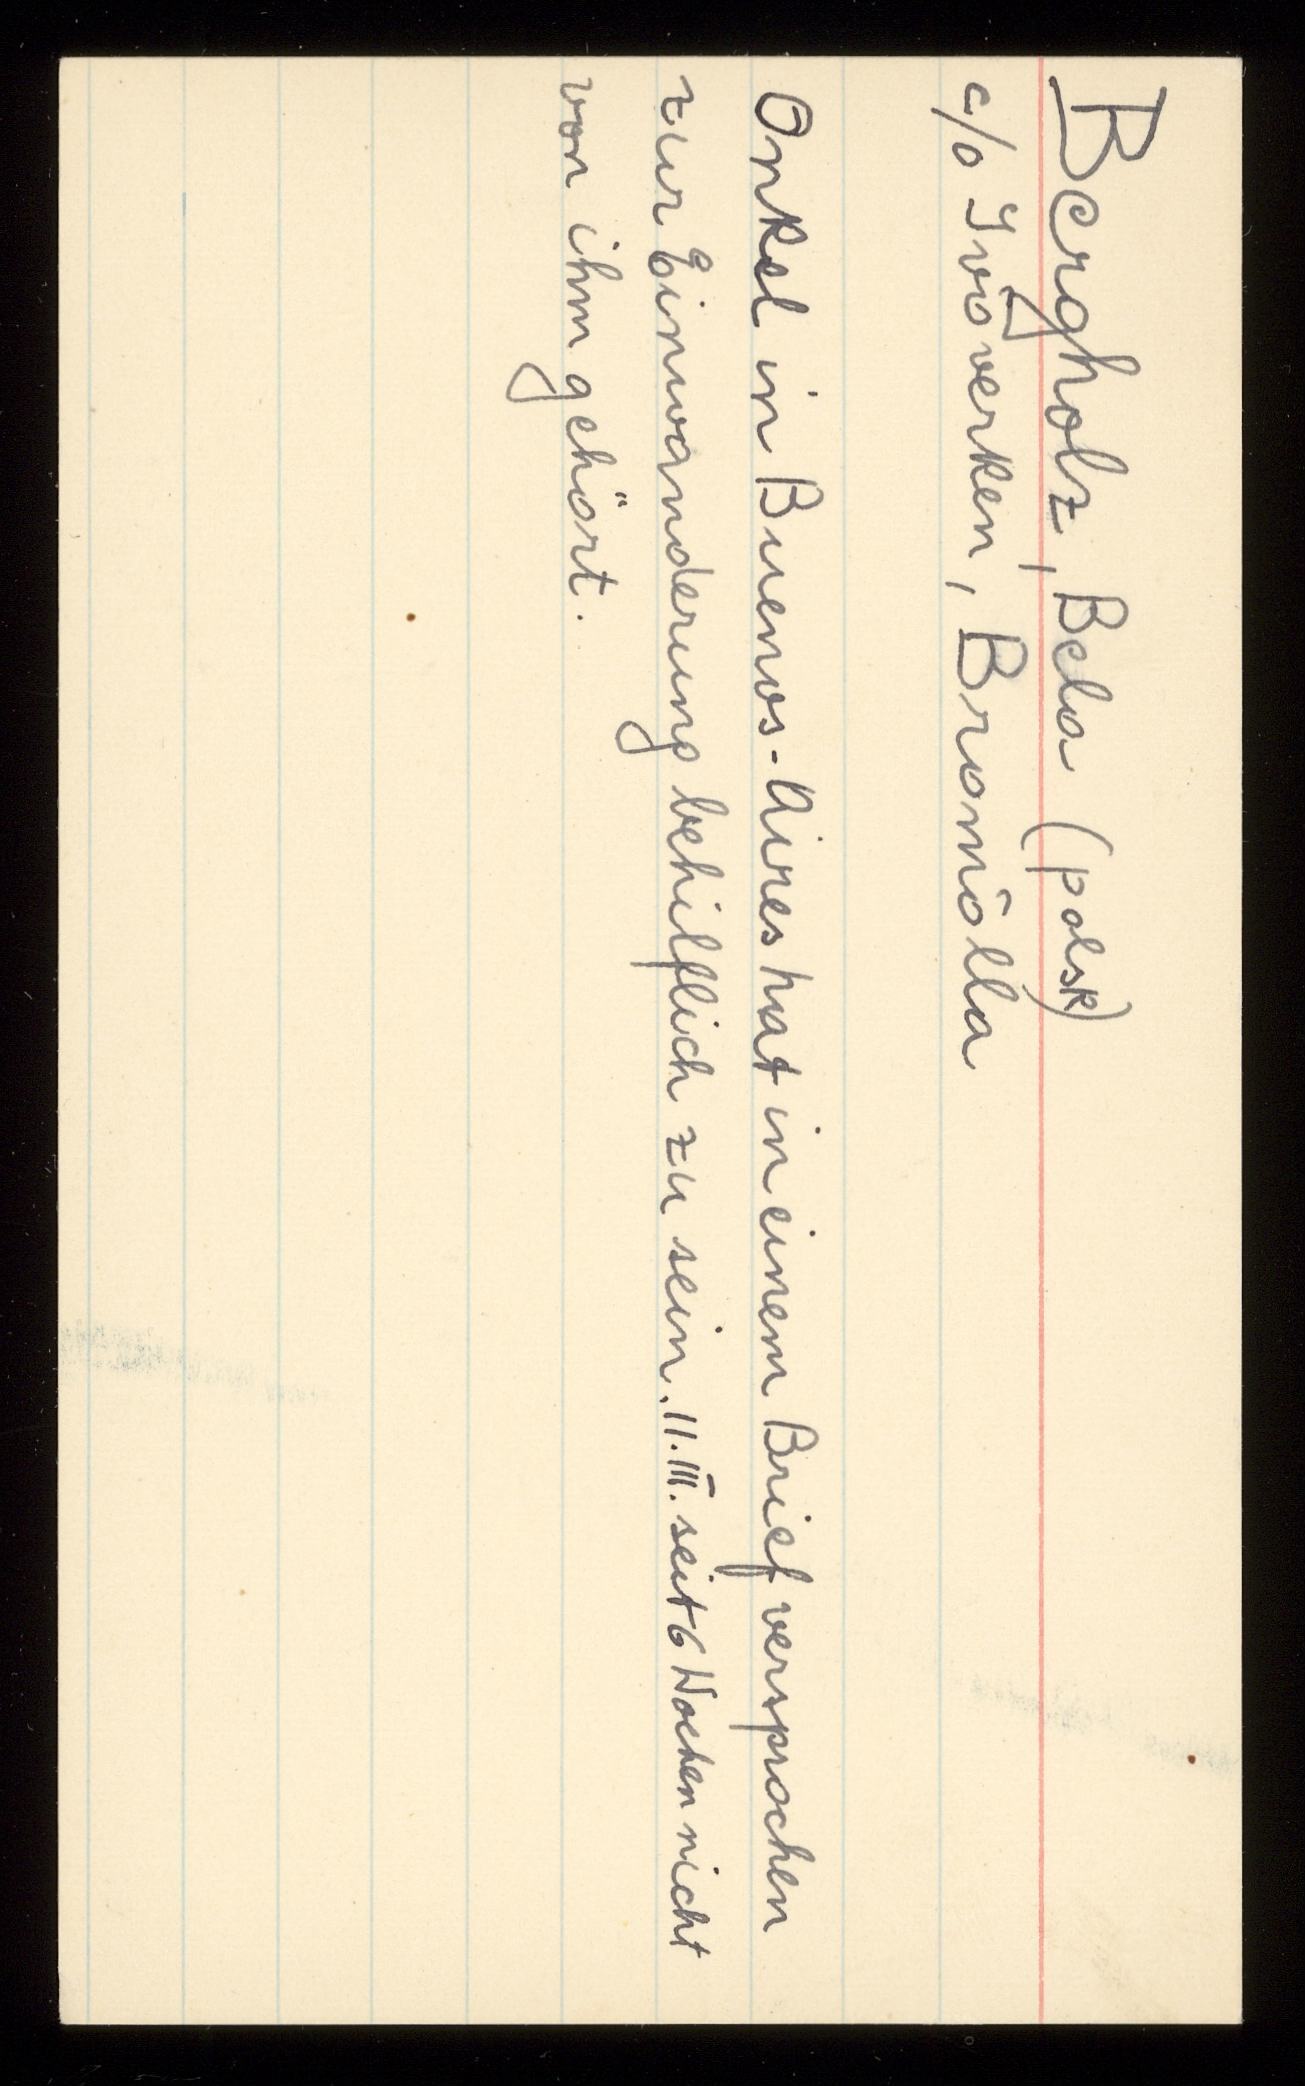 Bergholz, Bela (polsk)
c/o Ivöverken, Bromölla
Onkel in Buenos-Aires hat in einem Brief versprochen
zur Einwanderung behilflich zu sein. 11.III. seit 6 Wochen nicht
von ihm gehört.